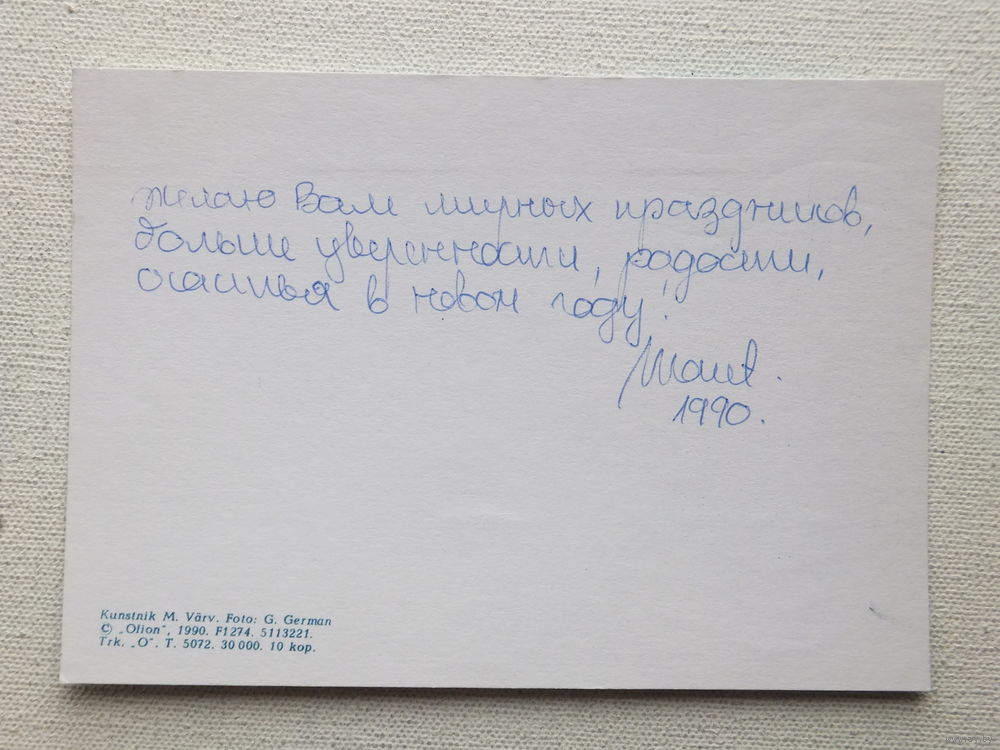 желаю Вам мирных праздников,
больше уверенности, радости,
счастья в новом году!
1990.
Kunstnik M. Värv. Foto: G. German
© „Olion“, 1990. F1274. 5113221.
Trk. „O“. T. 5072. 30 000. 10 kop.